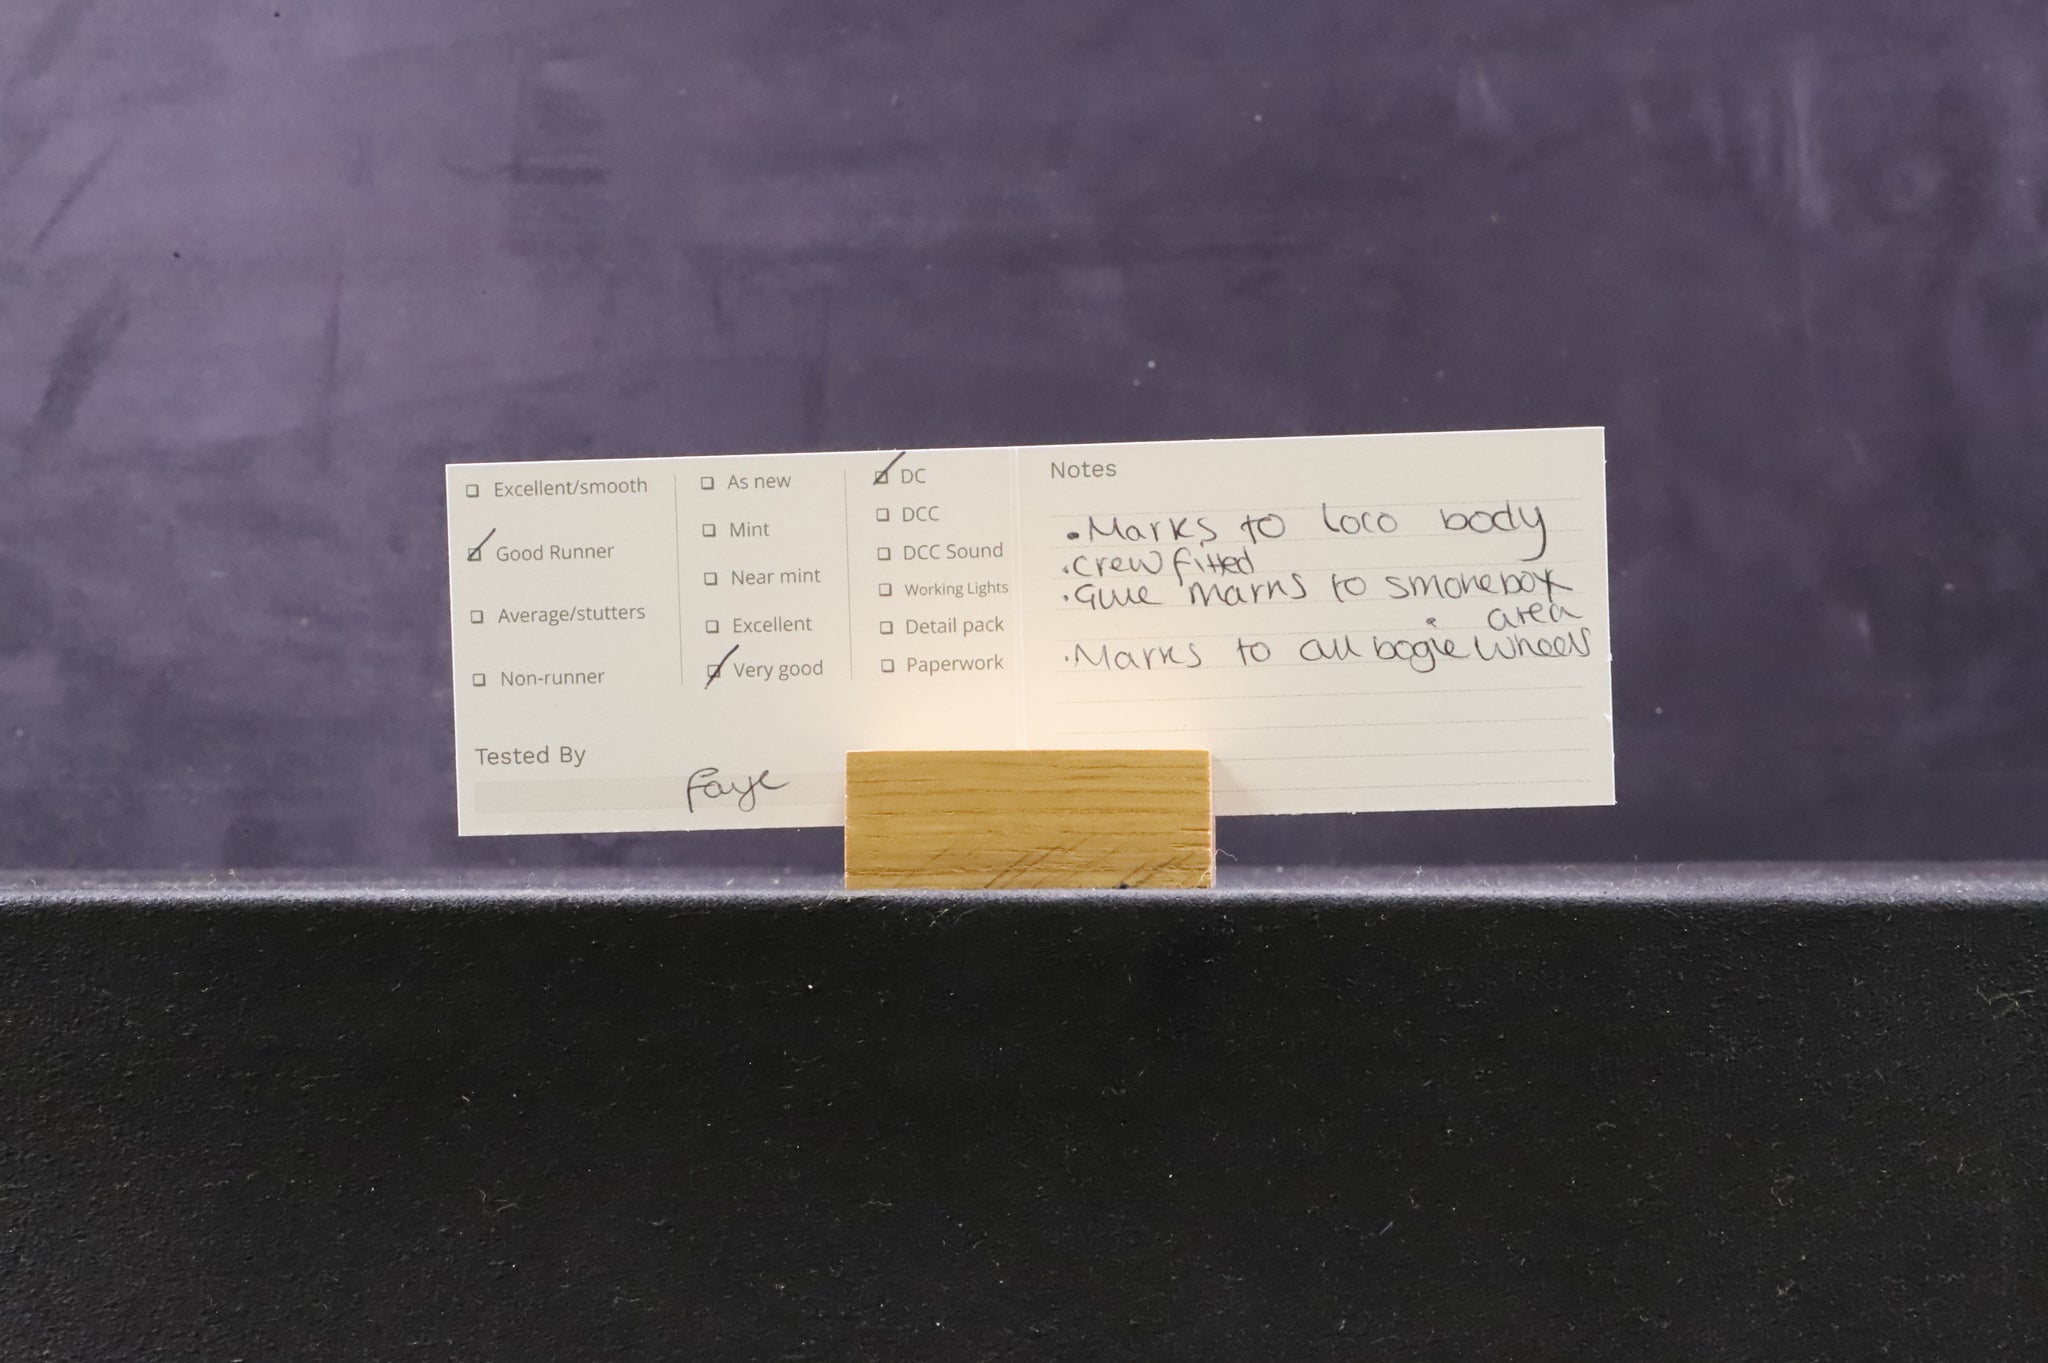 Excellent/smooth
Good Runner
Average/stutters
Non-runner
As new
Mint
Near mint
Excellent
Very good
DC
DCC
DCC Sound
Working Lights
Detail pack
Paperwork
Tested By
Faye
Notes
• Marks to loco body
• crew fitted
• Glue marks to smokebox
area
• Marks to all bogie wheels